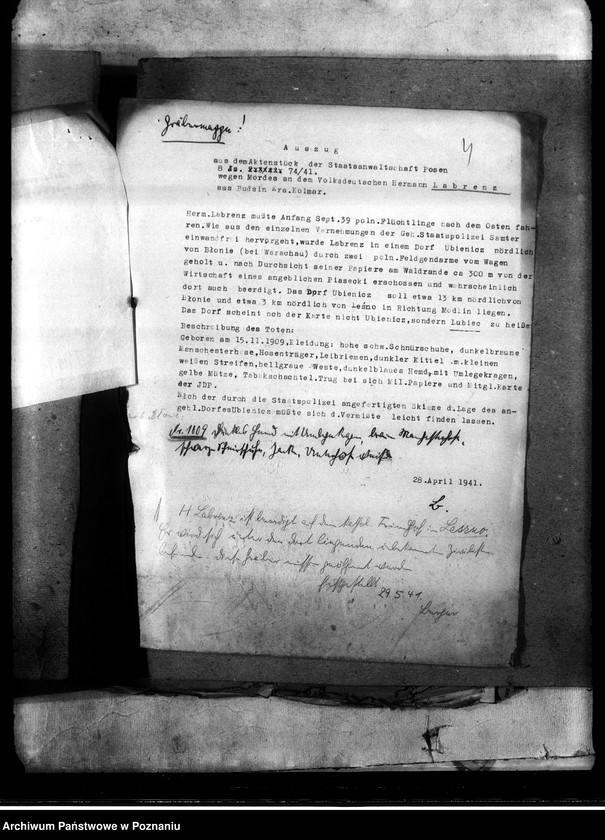 Gräbermappe!
4
Auszug
aus dem Aktenstück der Staatsanwaltschaft Posen
8 Js. 74/41.
wegen Mordes an dem Volksdeutschen Hermann Labrenz
aus Budsin Krs.Kolmar.
Herm.Labrenz mußte Anfang Sept.39 poln.Flüchtlinge nach dem Osten fah-
ren.Wie aus den einzelnen Vernehmungen der Geh.Staatspolizei Samter
einwandfrei hervorgeht,wurde Labrenz in einem Dorf Ubienicz nördlich
von Błonie (bei Warschau) durch zwei poln.Feldgendarme vom Wagen
geholt u. nach Durchsicht seiner Papiere am Waldrande ca 300 m von der
Wirtschaft eines angeblichen Piasecki erschossen und wahrscheinlich
dort auch beerdigt. Das Dorf Ubienicz soll etwa 13 km nördlichvon
Błonie und etwa 3 km nördlich von Leśno in Richtung Modlin liegen.
Das Dorf scheint nach der Karte nicht Ubienicz,sondern Lubiec zu heißen
Beschreibung des Toten:
Geboren am 15.11.1909,Kleidung: hohe schw.Schnürschuhe, dunkelbraune
Manschesterhose,Hosenträger, Leibriemen,dunkler Kittel m.kleinen
weißen Streifen,hellgraue Weste,dunkelblaues Hemd,mit Umlegekragen,
gelbe Mütze, Tabakschachtel.Trug bei sich Mil.Papiere und Mitgl.Karte
der JDP.
Nach der durch die Staatspolizei angefertigten Skizze d.Lage des an-
gebl.DorfesUbienicz müßte sich d.Vermißte leicht finden lassen.
Nr. 1109 Hemd mit Umlegekragen,
28.April 1941.
L.
H Labrenz ist beerdigt auf dem Friedhof in Leszno.
Er wird sich unter den dort liegenden unbekannten
befinden
werden
festgestellt
29.5.41
Archiwum Państwowe w Poznaniu